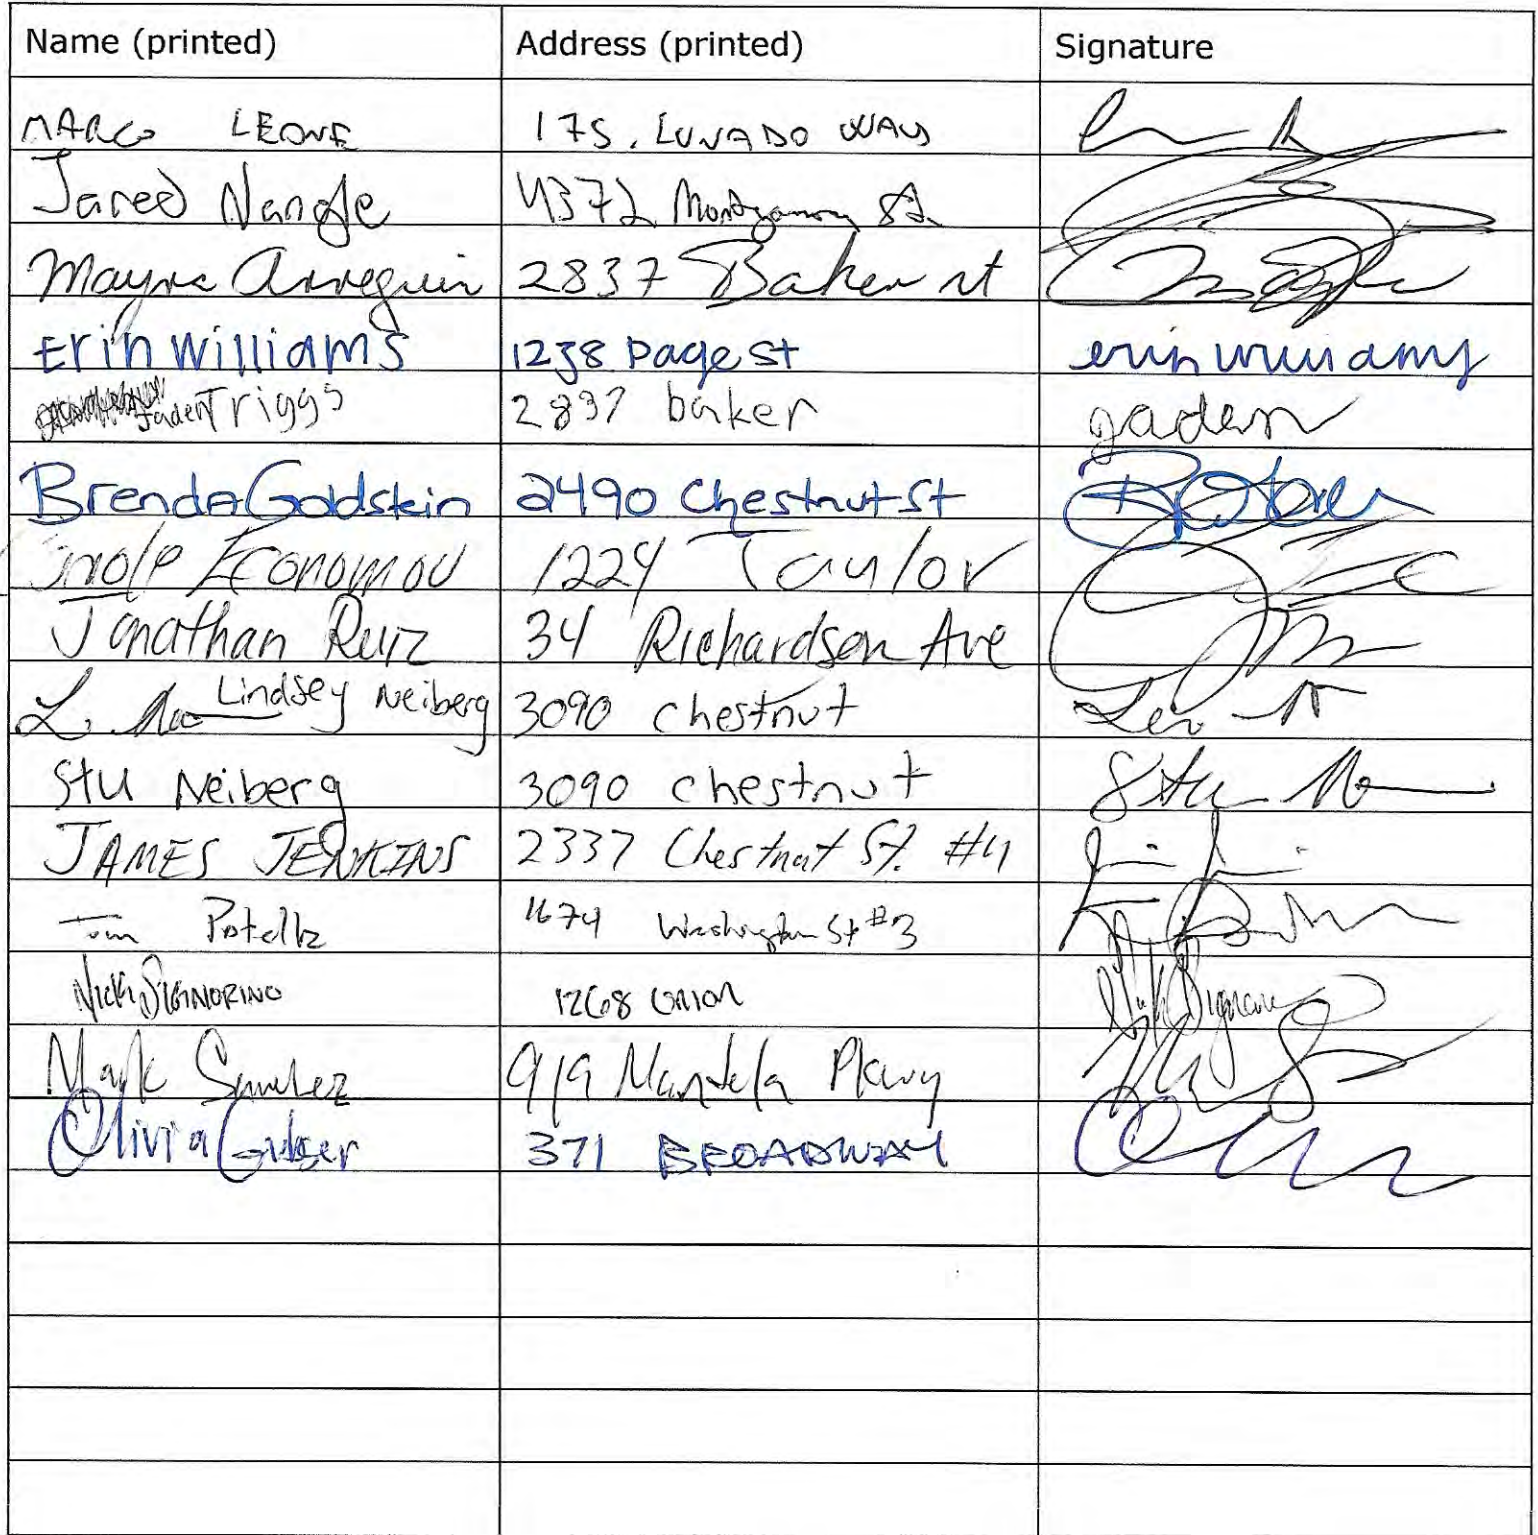 Name (printed) Address (printed) Signature
MARCO LEONE 175. LUNADO WAY
Jared Nangle 4372 Montgomery St.
Mayra Arreguin 2837 Baker st
Erin Williams 1238 Page St erin williams
Jaden Triggs 2837 baker jaden
Brenda Goldstein 2490 Chestnut St
Economou 1224 Taylor
Jonathan Ruiz 34 Richardson Ave
L. Lindsey Neiberg 3090 chestnut
Stu Neiberg 3090 chestnut Stu
JAMES JENKINS 2337 Chestnut St. #4
Tom 1674 Washington St #3
Nick SIGNORINO 1268 Union
Mark 919 Mandela Pkwy
Olivia 371 BROADWAY